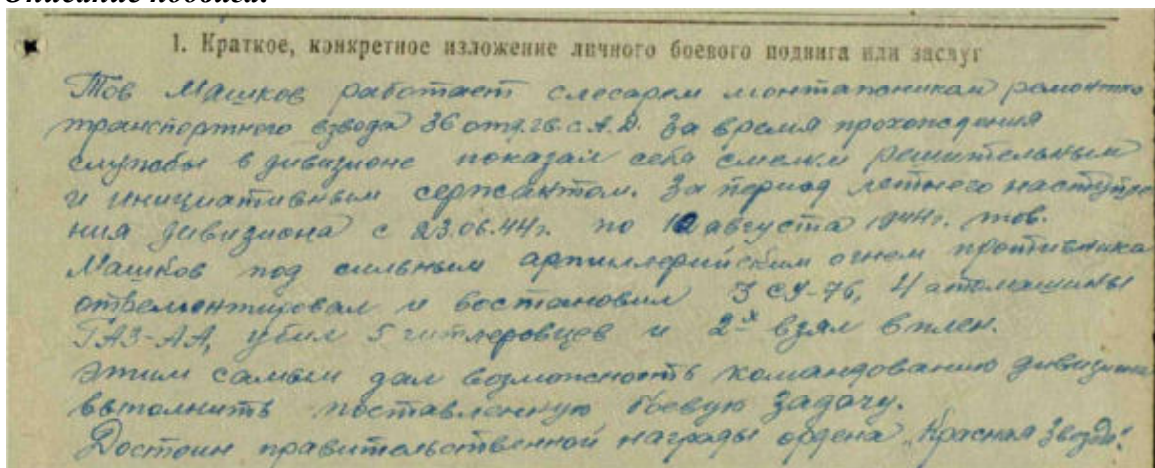 Описание подвига:
1. Краткое, конкретное изложение личного боевого подвига или заслуг
Тов Машков работает слесарем монтажником ремонтно
транспортного взвода 36 отд.гв.с.А.Д. За время прохождения
службы в дивизионе показал себя смелым решительным
и инициативным сержантом. За период летнего наступле
ния дивизиона с 23.06.44г. по 10 августа 1944г. тов.
Машков под сильным артиллерийским огнем противника
отремонтировал и востановил 3 СУ-76, 4 автомашины
ГАЗ-АА, убил 5 гитлеровцев и 2х взял в плен.
Этим самым дал возможность командованию дивизиона
выполнить поставленную боевую задачу.
Достоин правительственной награды ордена „Красная Звезда".